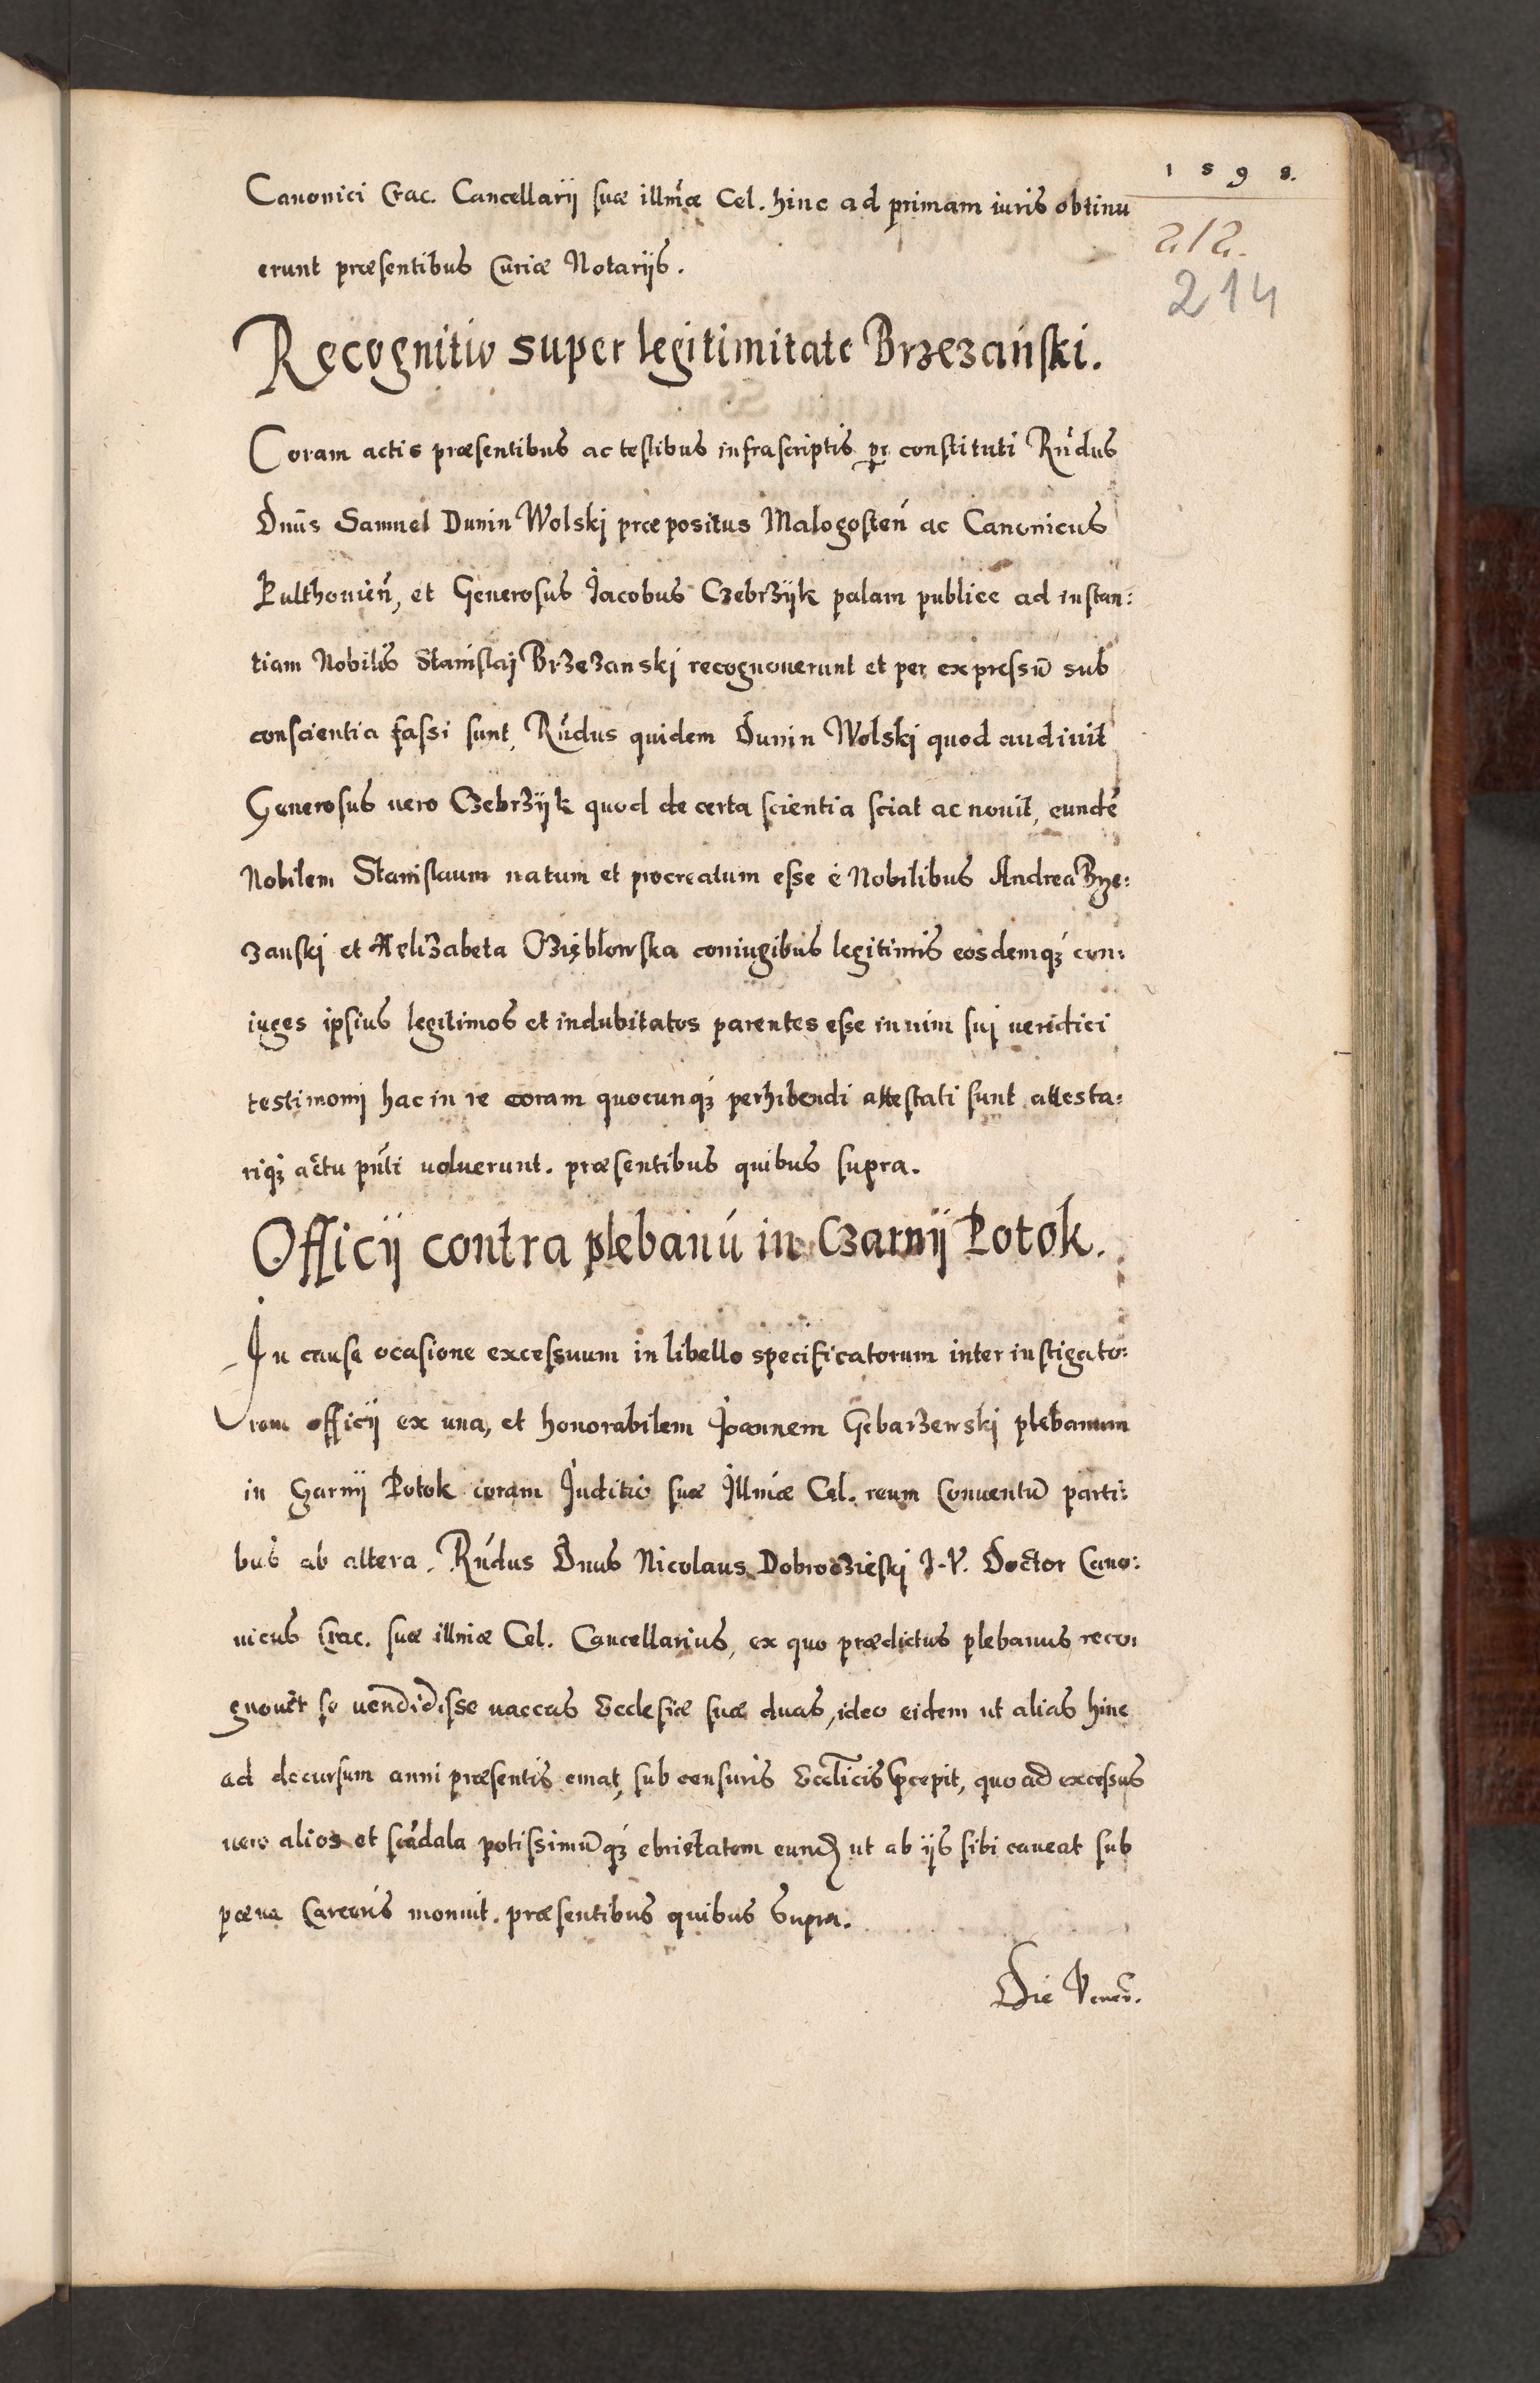 1598.
212.
214
Canonici Crac. Cancellarij suæ illmæ Cel. hinc ad primam iuris obtinu
erunt præsentibus Curiæ Notarijs.
Recognitio super legitimitate Brzezański.
Coram actis præsentibus ac testibus infrascriptis pr constituti Rńdus
Dnus Samuel Dunin Wolskj præpositus Malogosteń ac Canonicus
Pulthovień, et Generosus Jacobus Czebrzÿk palam publice ad instan:
tiam Nobilis Stanislaj Brzezanskj recognoverunt et per expressū sub
conscientia fassi sunt, Rńdus quidem Dunin Wolskj quod audiuit
Generosus uero Czebrzÿk quod de certa scientia sciat ac nouit, eundē
Nobilem Stanislaum natum et procreatum esse è Nobilibus Andrea Brze:
zanskj et Helizabeta Cziębłowska coniugibus legitimis eosdemqз con:
iuges ipsius legitimos et indubitatos parentes esse in uim suj ueridici
testimonij hac in re coram quocunqз perhibendi attestati sunt attesta:
riqз actu pńti uoluerunt. præsentibus quibus supra.
Officij contra plebanú in Czarnÿ Potok.
In causa ocasione excessuum in libello specificatorum inter instigato:
rem officij ex una, et honorabilem Joannem Gebarzewskj plebanum
in Czarnÿ Potok coram Juditio suæ Illmæ Cel. reum Conventū parti:
bus ab altera. Rńdus Dnus Nicolaus Dobroczieskj J. V. Doctor Cano:
nicus Crac. suæ illmæ Cel. Cancellarius, ex quo prædictus plebanus reco:
gnouit se vendidisse uaccas Ecclesiæ suæ duas, ideo eidem ut alias hinc
ad decursum anni præsentis emat, sub censuris Eccłticis pcepit, quo ad excessus
uero alios et scādala potissimūqз ebrietatem eundē ut ab ijs sibi caueat sub
pœna Carceris monuit. præsentibus quibus Supra.
Die Vener.